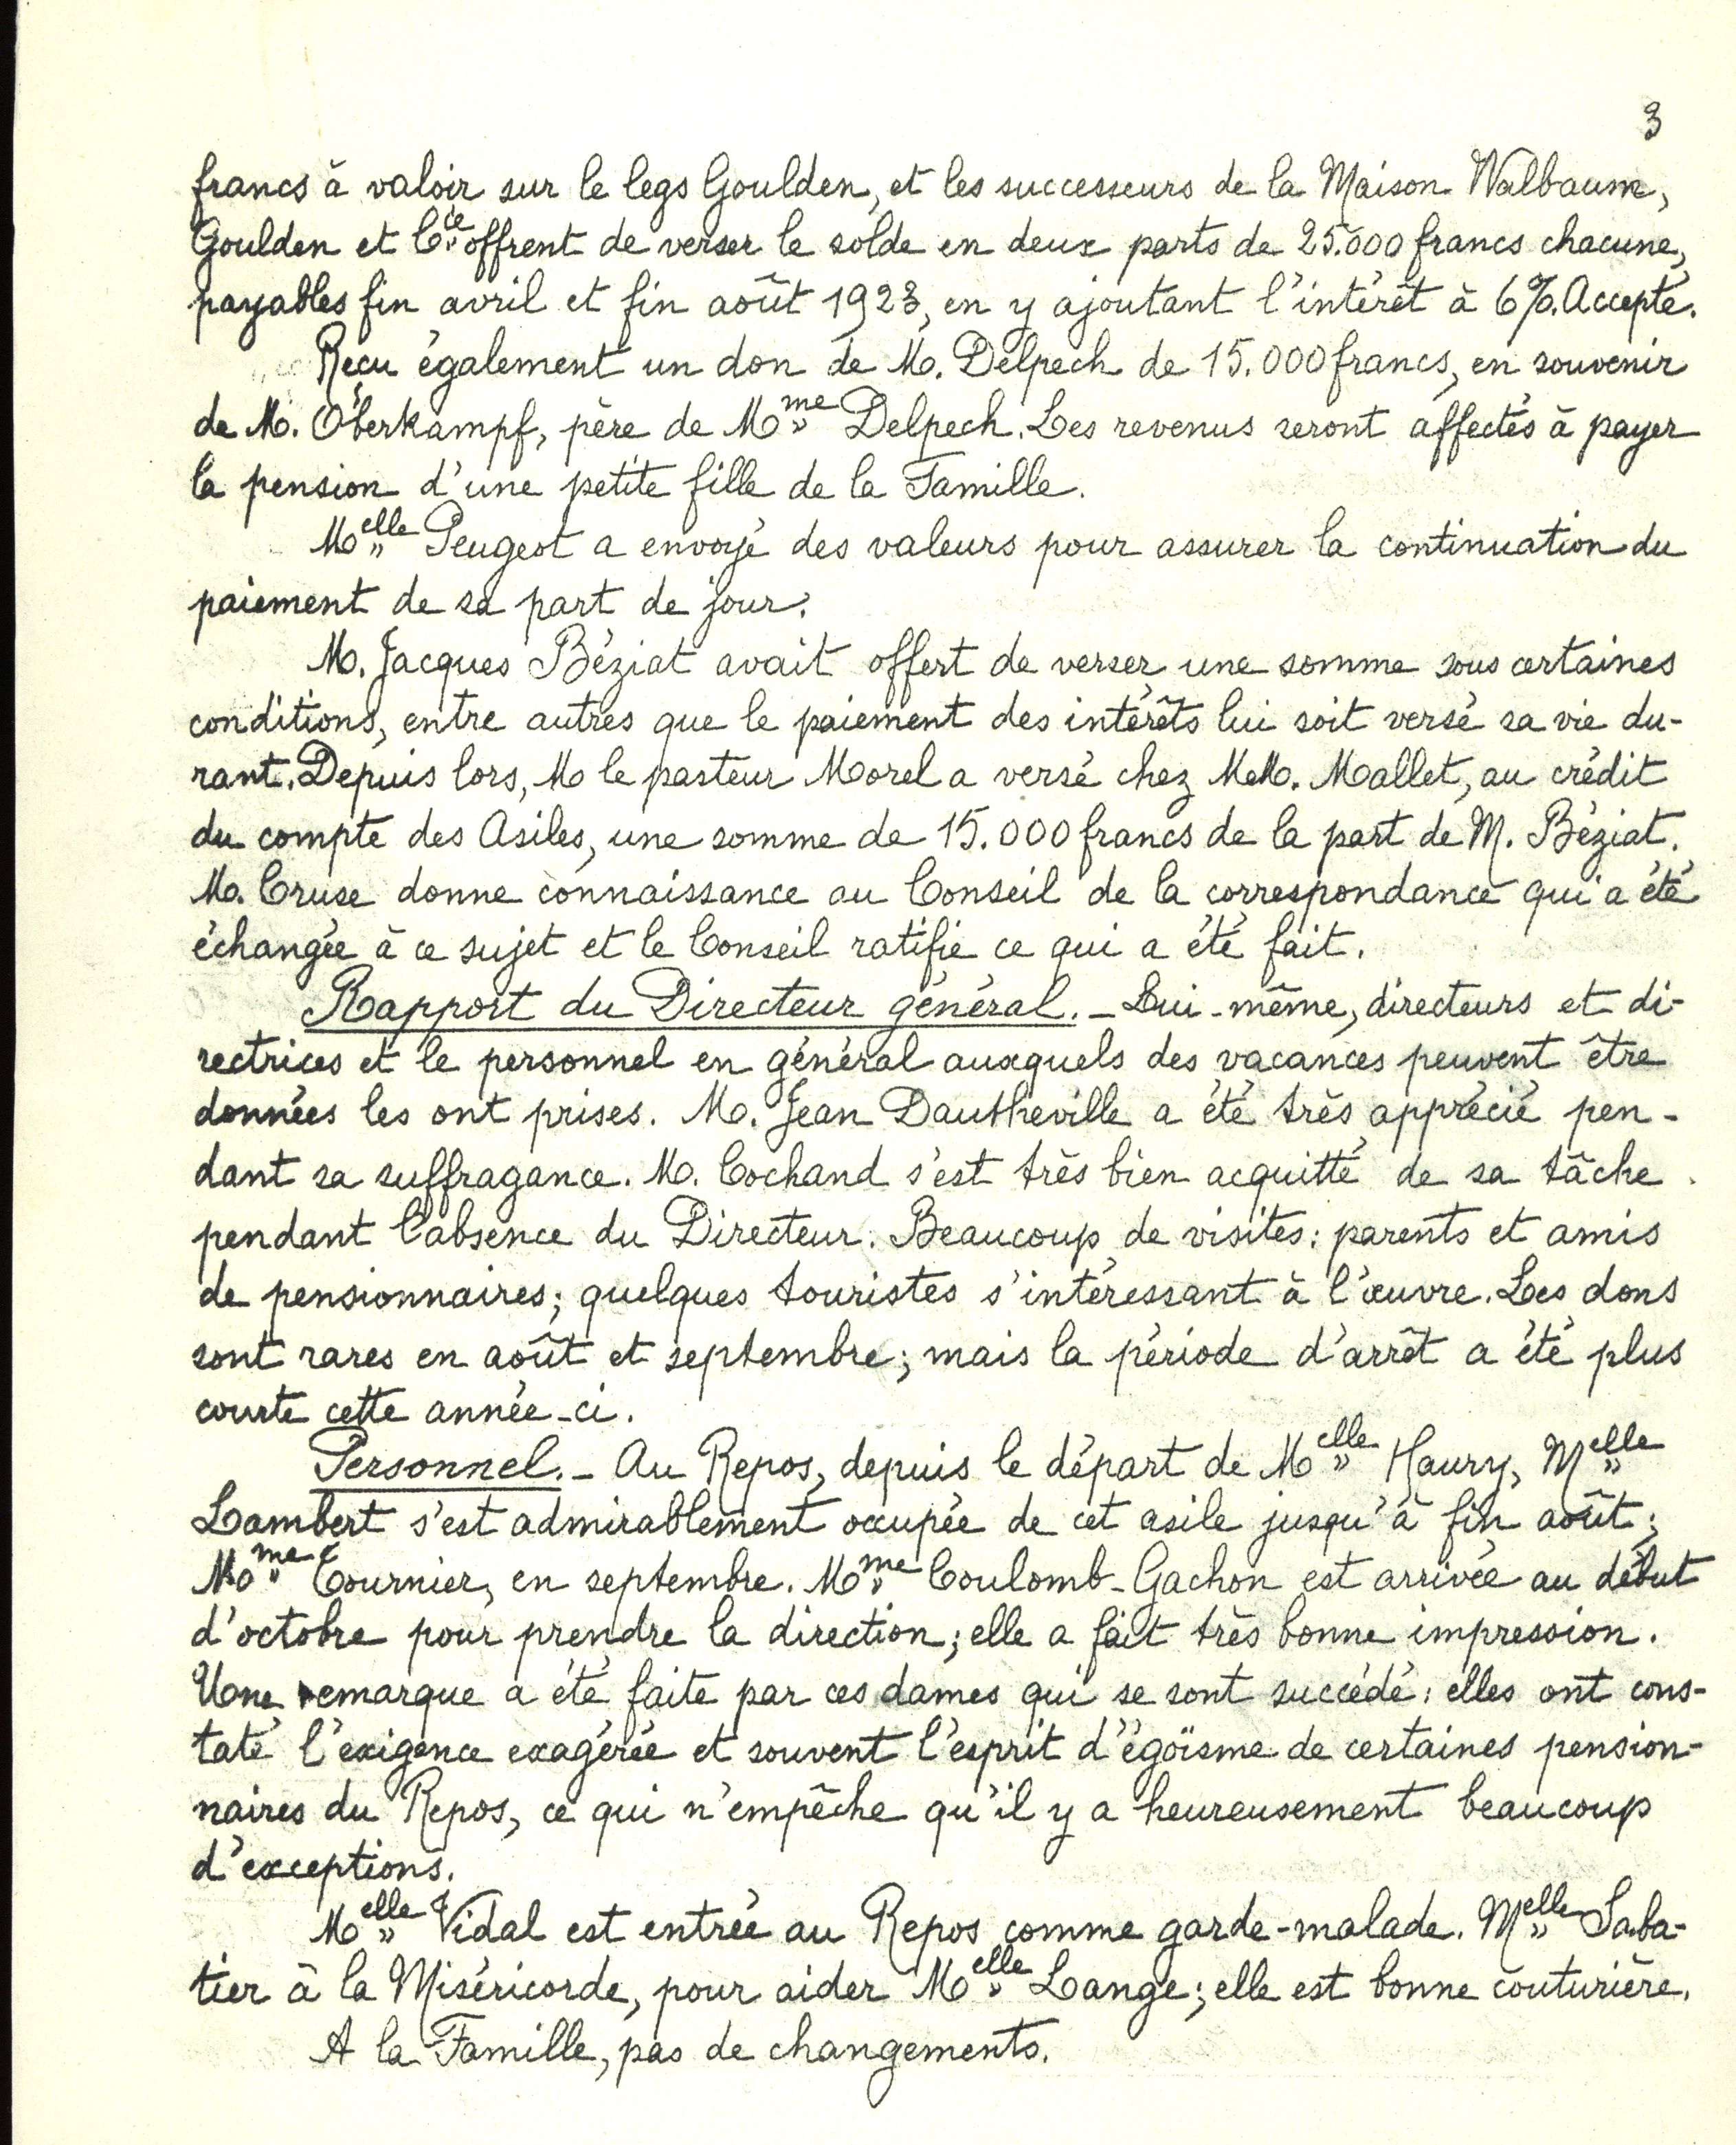 3
francs à valoir sur le legs Goulden, et les successeurs de la Maison Walbaum,
Goulden et Cie offrent de verser le solde en deux parts de 25.000 francs chacune,
payables fin avril et fin août 1923, en y ajoutant l'intérêt à 6%. Accepté.
Reçu également un don de M. Delpech de 15.000 francs, en souvenir
de M. Oberkampf, père de Mme Delpech. Les revenus seront affectés à payer
la pension d'une petite fille de la Famille.
Melle Peugeot a envoyé des valeurs pour assurer la continuation du
paiement de sa part de jour.
M. Jacques Béziat avait offert de verser une somme sous certaines
conditions, entre autres que le paiement des intérêts lui soit versé sa vie du-
rant. Depuis lors, M le pasteur Morel a versé chez MM. Mallet, au crédit
du compte des Asiles, une somme de 15.000 francs de la part de M. Béziat.
M. Cruse donne connaissance au Conseil de la correspondance qui a été
échangée à ce sujet et le Conseil ratifie ce qui a été fait.
Rapport du Directeur général. - Lui-même, directeurs et di-
rectrices et le personnel en général auxquels des vacances peuvent être
données les ont prises. M. Jean Dautheville a été très apprécié pen-
dant sa suffragance. M. Cochand s'est très bien acquitté de sa tâche
pendant l'absence du Directeur. Beaucoup de visites: parents et amis
de pensionnaires; quelques touristes s'intéressant à l'œuvre. Les dons
sont rares en août et septembre; mais la période d'arrêt a été plus
courte cette année-ci.
Personnel. - Au Repos, depuis le départ de Melle Haury, Melle
Lambert s'est admirablement occupée de cet asile jusqu'à fin août;
Mme Tournier, en septembre. Mme Coulomb-Gachon est arrivée au début
d'octobre pour prendre la direction; elle a fait très bonne impression.
Une remarque a été faite par ces dames qui se sont succédé: elles ont cons-
taté l'exigence exagérée et souvent l'esprit d'égoïsme de certaines pension-
naires du Repos, ce qui n'empêche qu'il y a heureusement beaucoup
d'exceptions.
Melle Vidal est entrée au Repos comme garde-malade. Melle Saba-
tier à la Miséricorde, pour aider Melle Lange; elle est bonne couturière.
A la Famille, pas de changements.